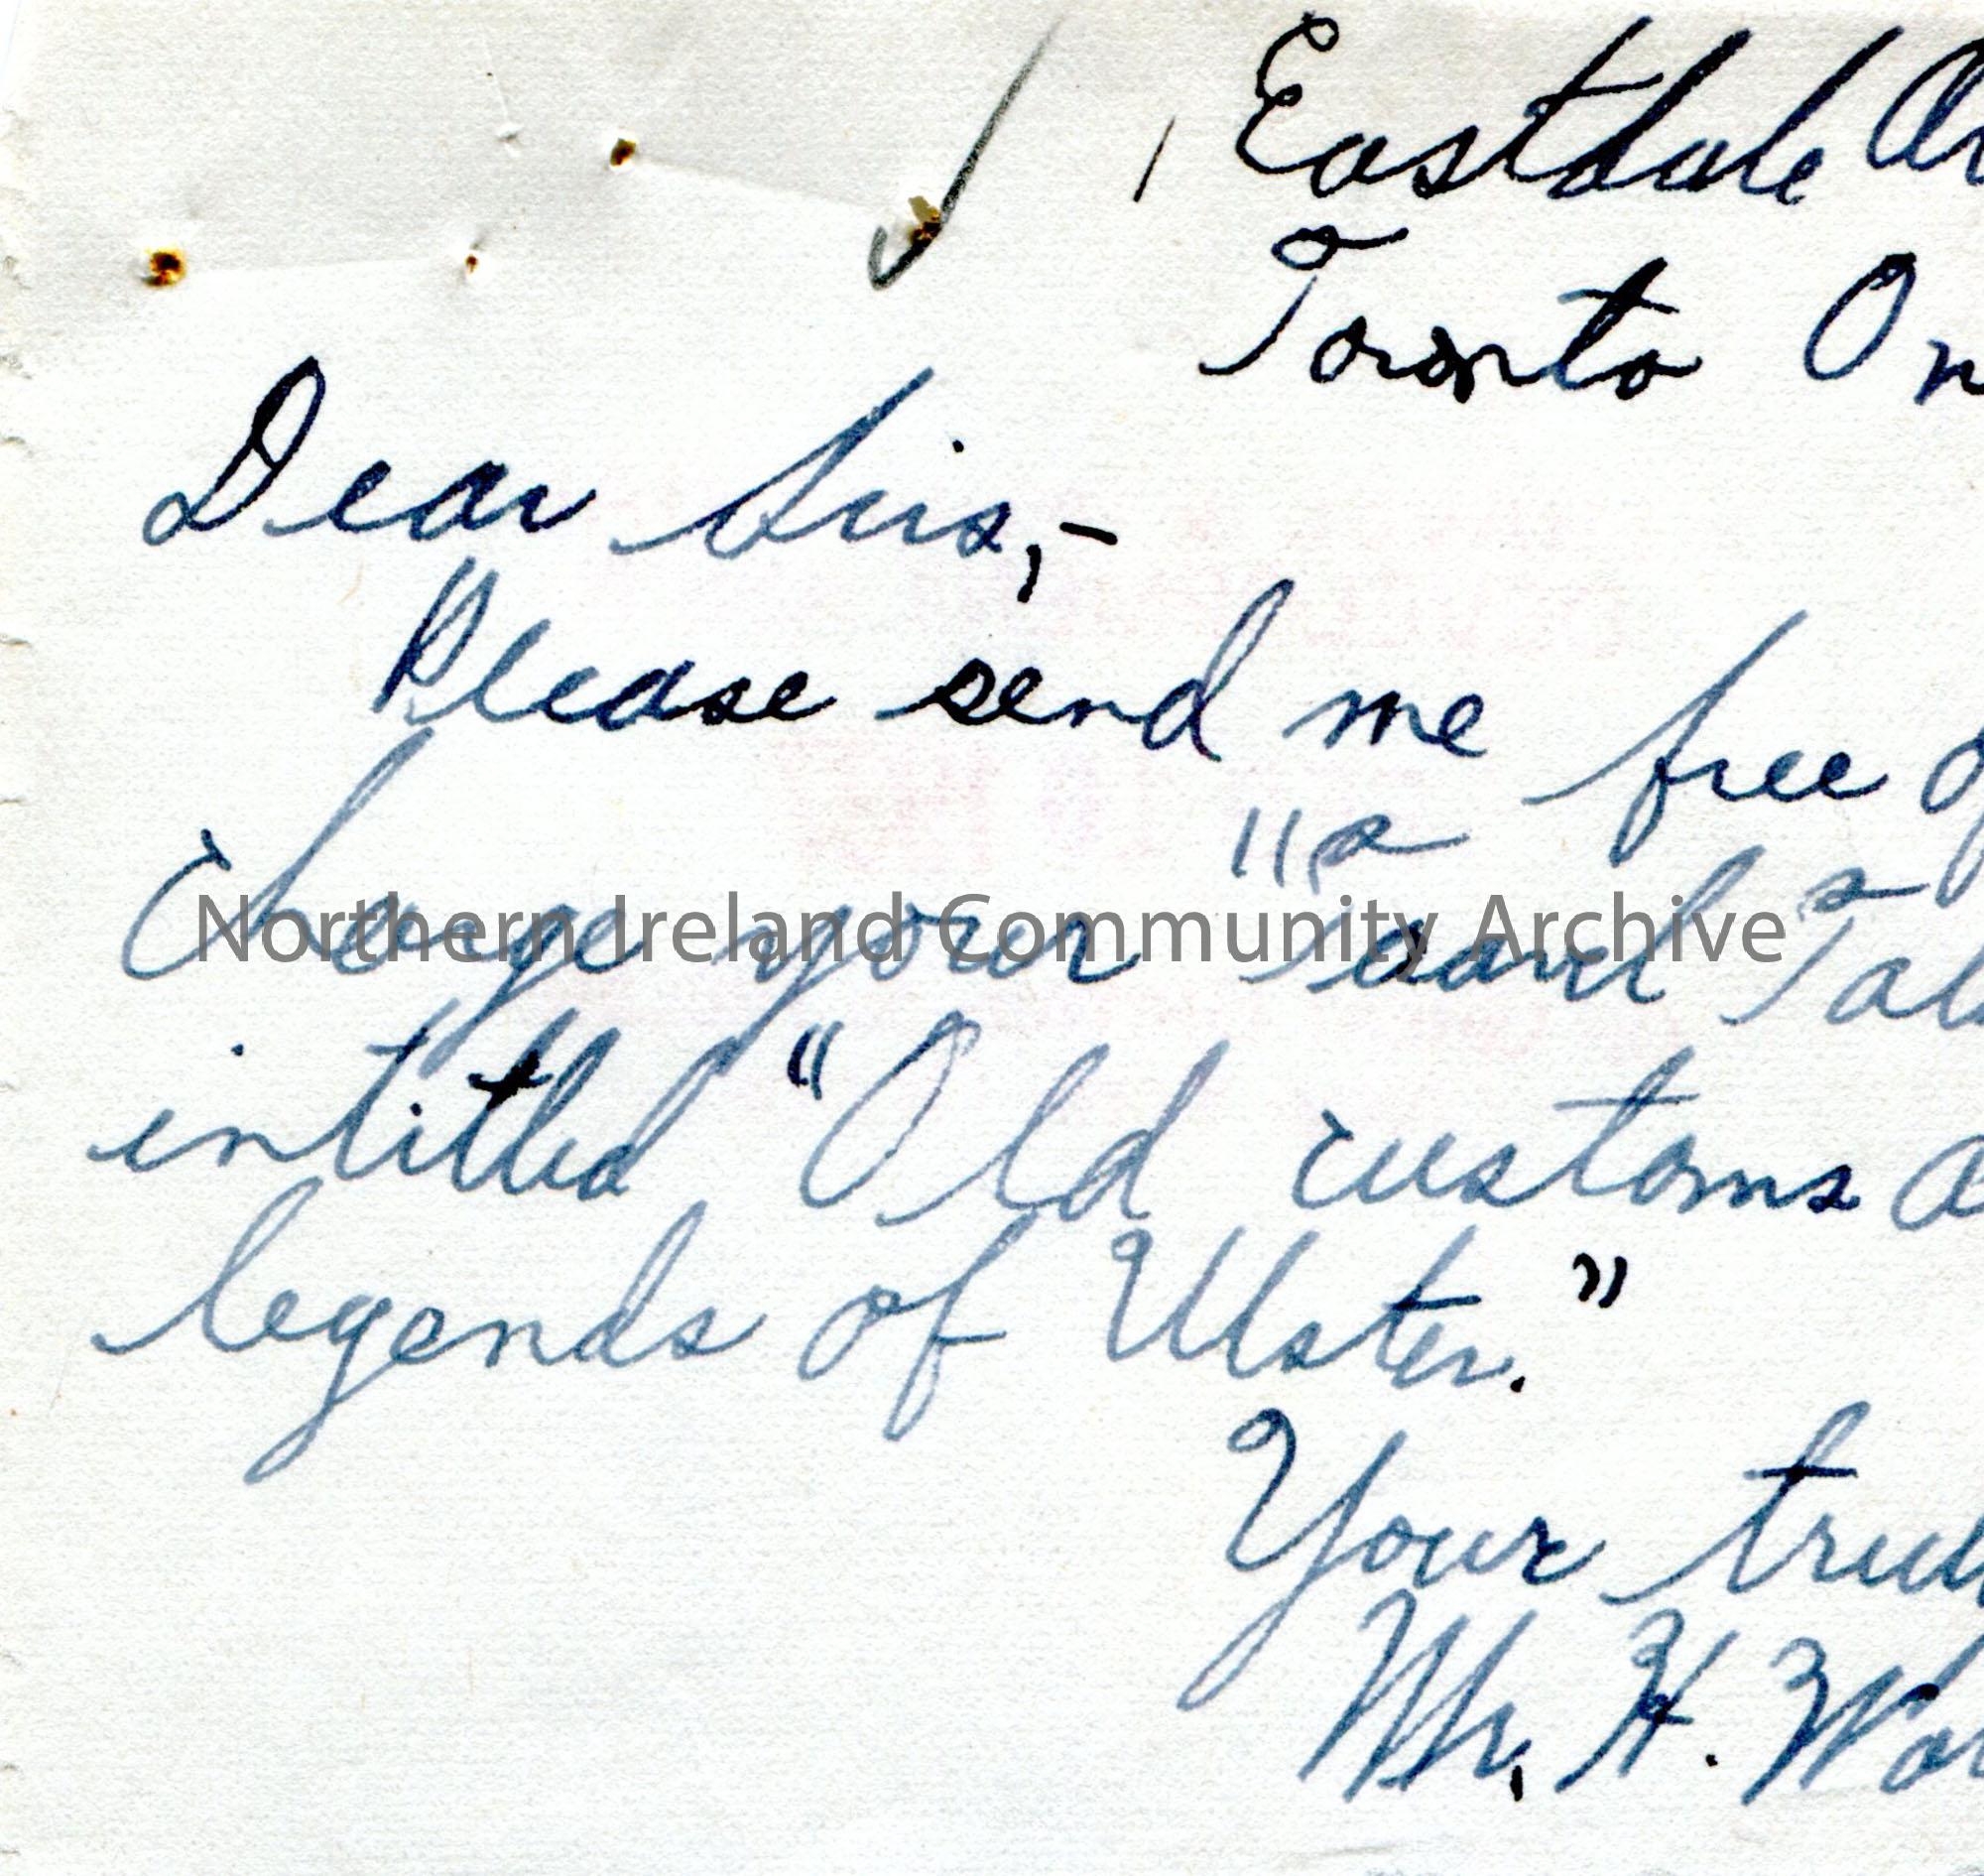 1 Eastdale Av
Toronto On
Dear Sirs,-
Please send me free of
Charge your "Taavel Tal
intitled "Old customs a
legends of Ulster."
Your truly
Mr. H. Wor
Northern Ireland Community Archive